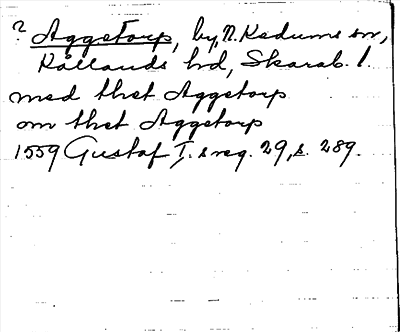 ? Aggetorp, by, N. Kedums sn,
Kållands hd, Skarab. l.
med thet Aggetorp
om thet Aggetorp
1559 Gustaf I:s reg. 29, s. 289.